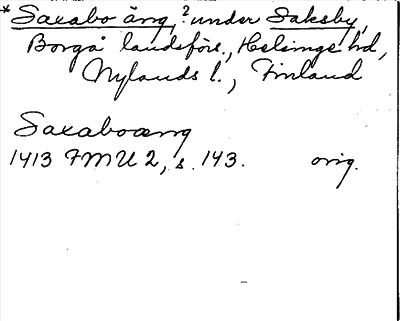 *Saxabo äng,? under Saksby,
Borgå landsförs., Helsinge hd,
Nylands l., Finland
Saxaboæng
1413 FMU 2, s. 143. orig.